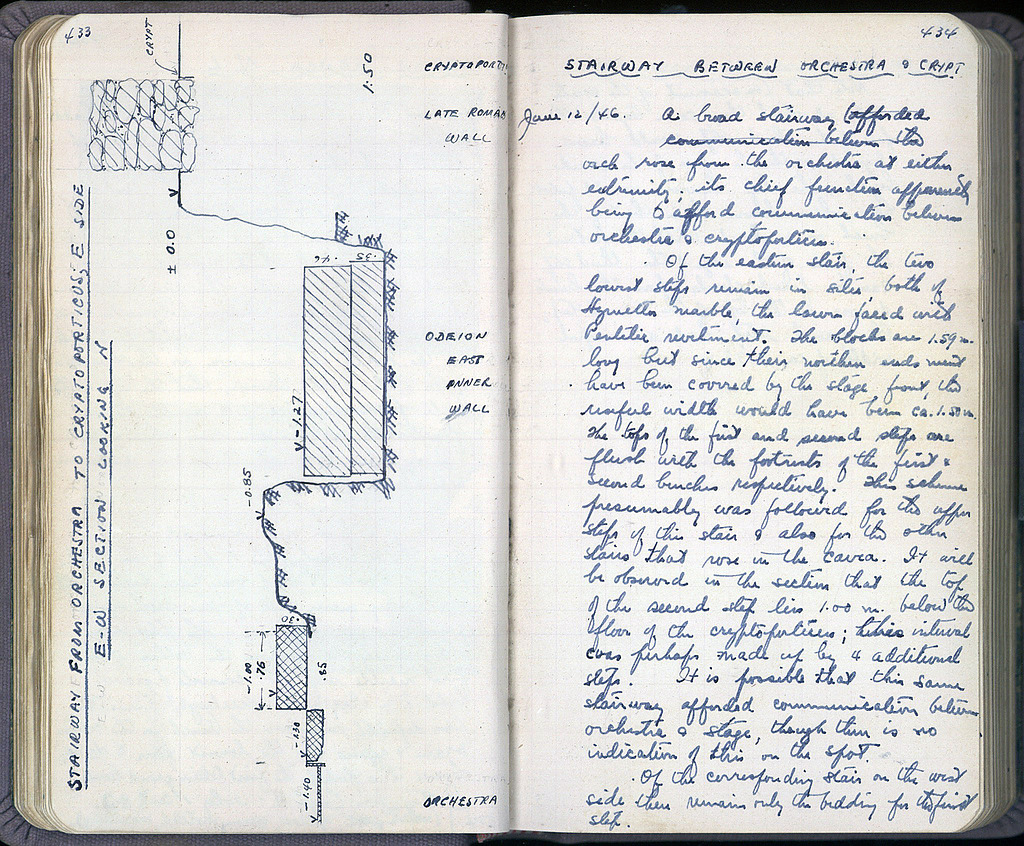 433
CRYPT
1:50
CRYPTOPORTI
LATE ROMAN
WALL
± 0.0
STAIRWAY FROM ORCHESTRA TO CRYPTOPORTICUS, E SIDE
E-W SECTION LOOKING N
.46
.35
ODEION
EAST
INNER
WALL
V -1.27
V -0.85
.30
-1.00
.76
.85
V -1.30
V -1.40
ORCHESTRA
434
STAIRWAY BETWEEN ORCHESTRA & CRYPT
June 12/46. A broad stairway (afforded
communication between the
each rose from the orchestra at either
extremity, its chief function apparently
being to afford communication between
orchestra & cryptoporticus.
Of the eastern stair, the two
lowest steps remain in situ, both of
Hymettus marble, the lower faced with
Pentelic revetment. The blocks are 1.59 m.
long but since their northern ends must
have been covered by the stage front, the
useful width would have been ca. 1.50 m.
The tops of the first and second steps are
flush with the footrests of the first &
second benches respectively. This scheme
presumably was followed for the upper
steps of this stair & also for the other
stairs that rose in the cavea. It will
be observed in the section that the top
of the second step lies 1.00 m. below the
floor of the cryptoporticus; this interval
was perhaps made up by 4 additional
steps. It is possible that this same
stairway afforded communication between
orchestra & stage, though there is no
indication of this on the spot.
Of the corresponding stair on the west
side there remain only the bedding for the first
step.